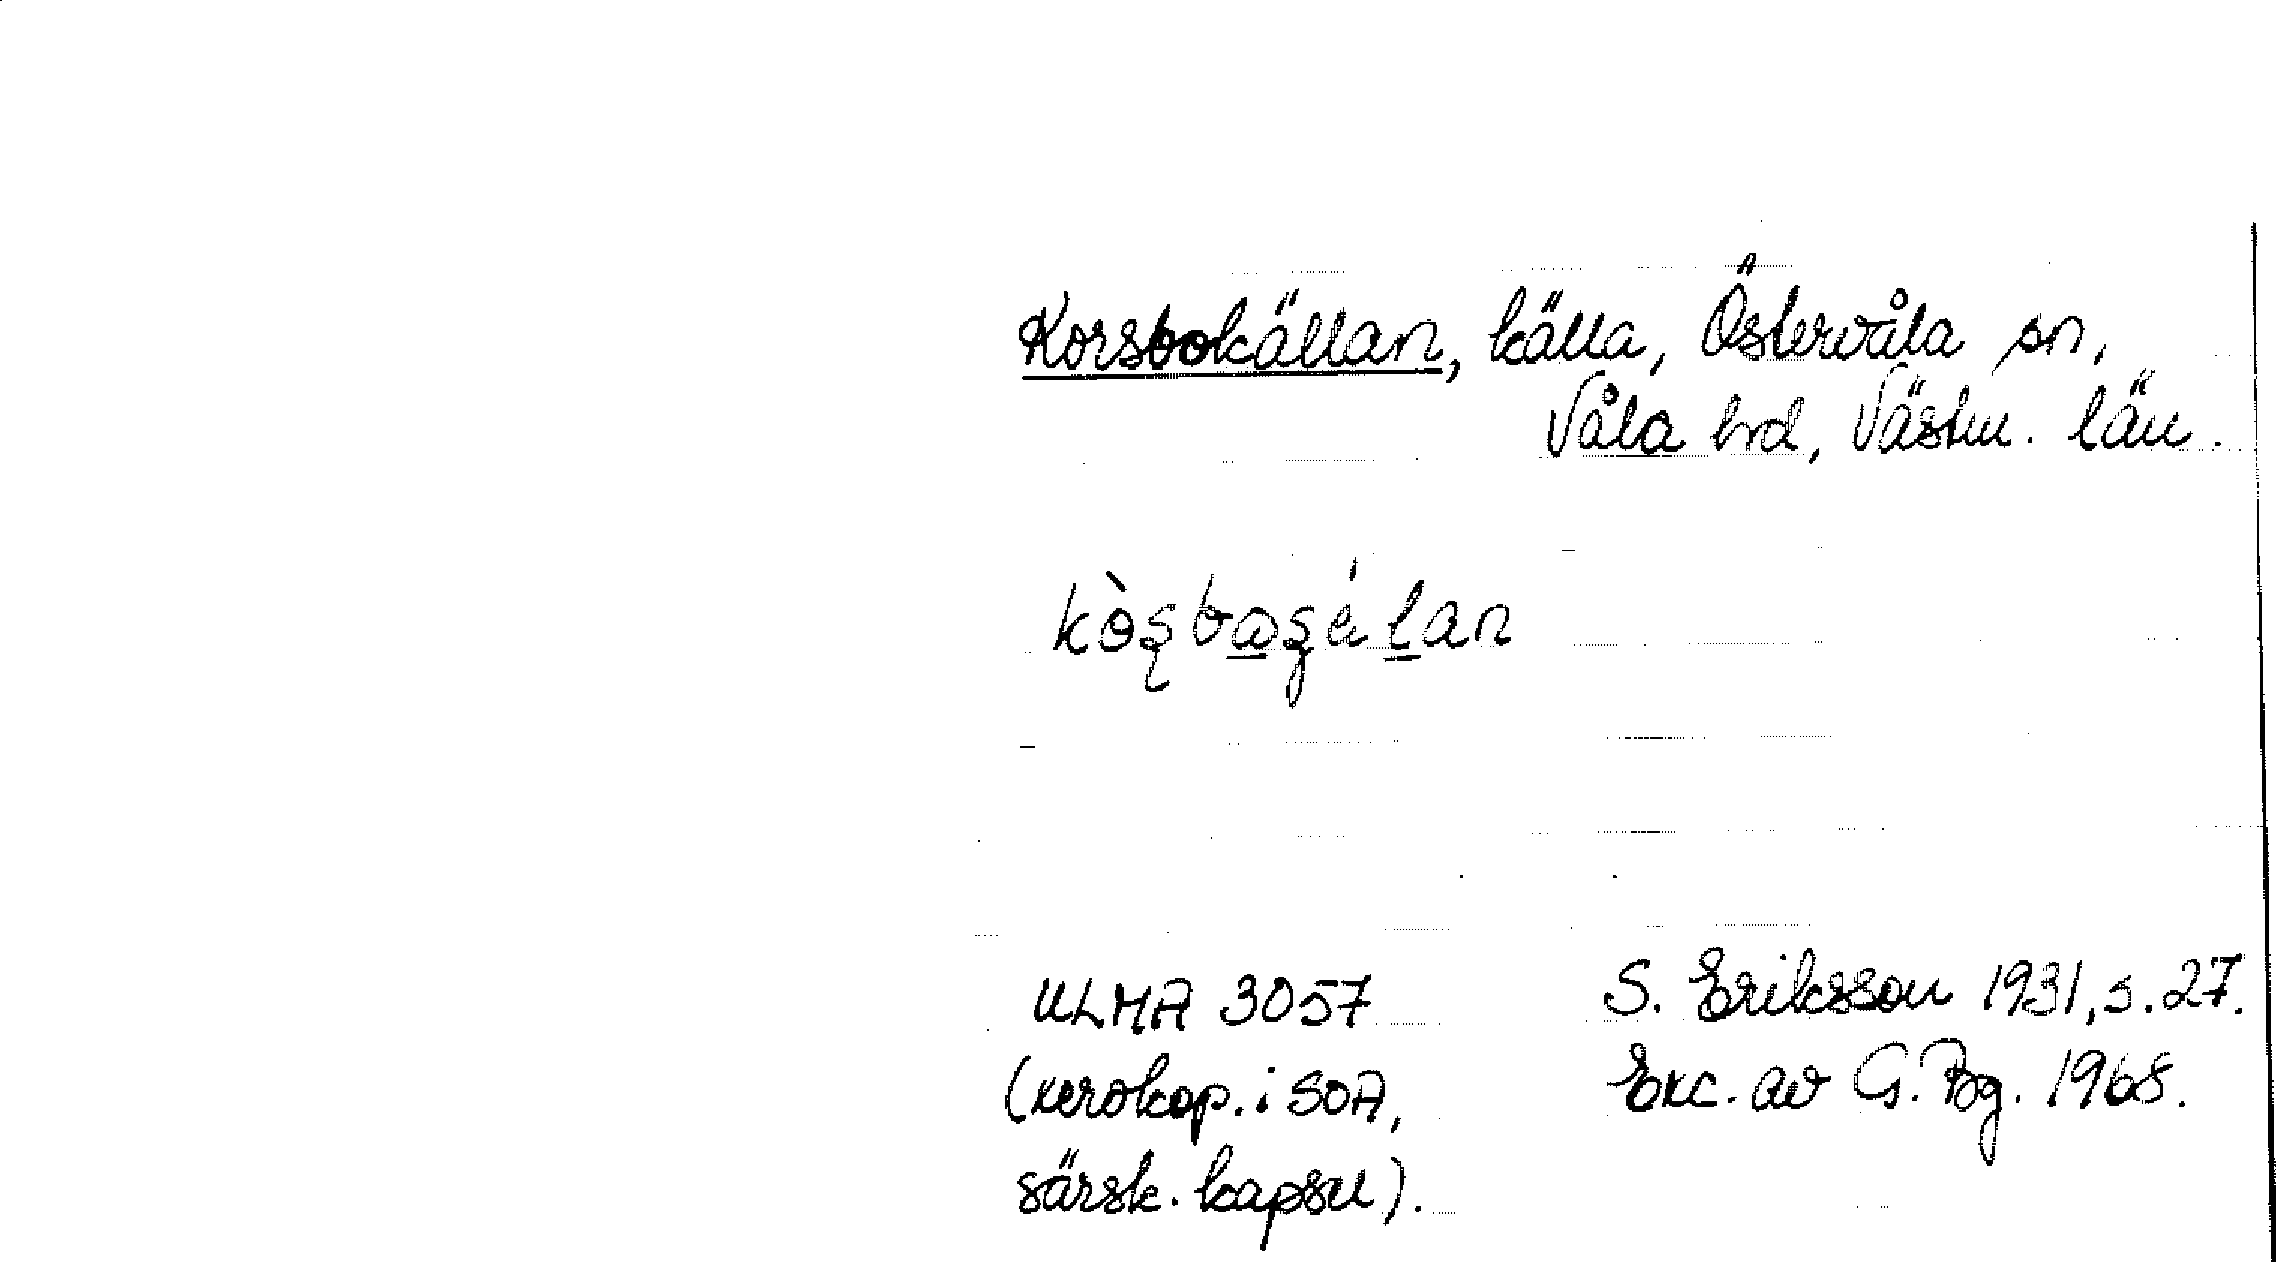 Korsbokällan, källa, Östervåla sn,
Våla hrd, Västm. län.
ULMA 3057 S. Eriksson 1931, s. 27.
(xerokop. i SOA, Exc. av G. Bg. 1968.
särsk. kapsel).